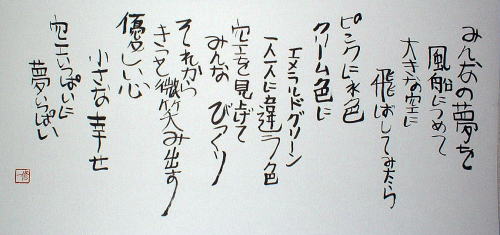 みんなの夢を
風船につめて
大きな空に
飛ばしてみたら
ピンクに水色
クリーム色に
エメラルドグリーン
一人一人に違う色
空を見上げて
みんな びっくり
それから
きっと微笑み出す
優しい心
小さな幸せ
空いっぱいに
夢いっぱい